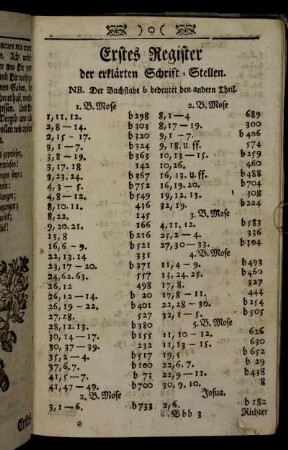 Erstes Register
der erklärten Schrift-Stellen.
NB. Der Buchstabe b bedeutet den andern Theil.
1. B. Mose
1, 11. 12. b 298
2, 8 — 14. b 303
2, 15 — 17. b 320
3, 1 — 7. b 324
3, 8 — 19. b 363
3, 17. 18 142
3, 23. 24. b 367
4, 3 — 5. b 752
4, 8 — 12. b 549
8, 10. 11. 436
8, 22. 145
9, 20. 21. 166
13, 8 b 216
16, 6 — 9. b 521
22, 13. 14 331
23, 17 — 20. b 371
24, 62. 63. 557
26, 12 498
26, 12 — 14. b 20
26, 19 — 22. b 201
27, 28. 527
28, 12. 13. b 380
30, 14 — 17. b 155
30, 37 — 39. 232
35, 2 — 4. b 517
37, 6. 7. b 100
41, 5 — 7. b 73
41, 47 — 49. b 700
2. B. Mose
3, 1 — 6. b 733
2. B. Mose
8, 1 — 4 689
8, 17 — 19. 300
9, 1 — 7. b 406
9, 18. u. ff. 574
10, 13 — 15. b 259
10, 26. 460
16, 13. u. ff. b 488
16, 19. 20. b 704
19, 12. 13. 308
32, 19. b 224
3. B. Mose
4, 11. 12. b 583
25, 2 — 4. 336
27, 30 — 33. b 104
4. B. Mose
11, 4 — 9. b 493
13, 24. 25. b 460
17, 8. 327
17, 8 — 11. 444
22, 28 — 30. b 254
32, 1 — 5. b 505
5. B. Mose
11, 10 — 12. 626
11, 13 — 15. 630
19, 5. b 652
22, 6. 7. b 29
22, 9 — 11. b 438
30, 9. 10. 8
Josua.
2, 6. b 182
B b b 3
Richter